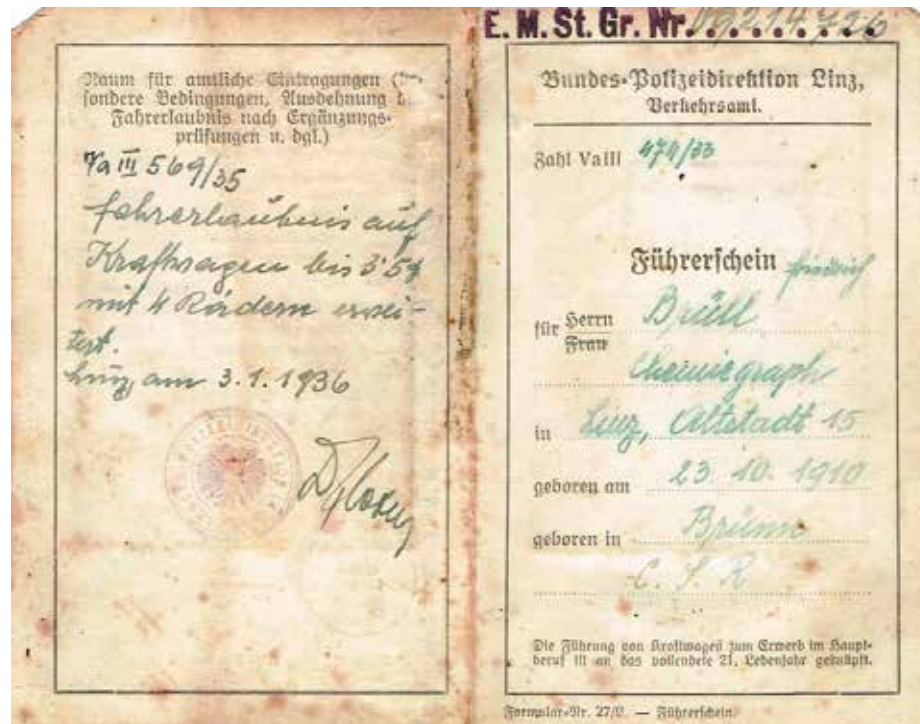 Raum für amtliche Eintragungen (be-
sondere Bedingungen, Ausdehnung d.
Fahrerlaubnis nach Ergänzungs-
prüfungen u. dgl.)
Va III 569/35
Fahrerlaubnis auf
Kraftwagen bis 3'5t
mit 4 Rädern erwei-
tert.
Linz, am 3.1.1936
E. M. St. Gr. Nr.
Bundes-Polizeidirektion Linz,
Verkehrsamt.
Zahl VaIII 474/33
Führerschein
Friedrich
für Herrn Brüll
Frau
Chemigraph
in Linz, Altstadt 15
geboren am 23. 10. 1910
geboren in Brünn
C. S. R
Die Führung von Kraftwagen zum Erwerb im Haupt-
beruf ist an das vollendete 21. Lebenjahr geknüpft.
Formular-Nr. 27/V. — Führerschein.